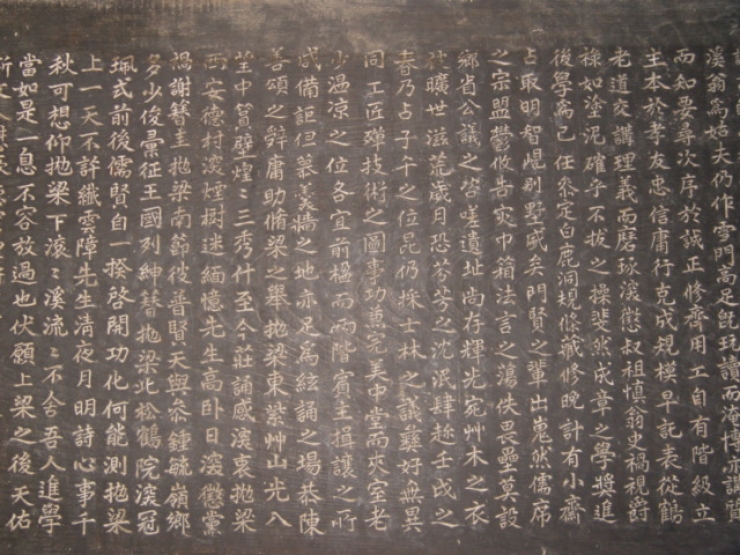 溪翁爲姑夫仍作雪門高足旣玩讀而淹博亦講質
而知要尋次序於誠正修齊用工自有階級立
生本於孝友忠信庸行克成規模早託表從鶴
老道交講理義而磨琢深懲叔祖愼翁史禍視爵
祿如塗泥確乎不拔之操斐然成章之學奬進
後學爲己任參定白鹿洞規條藏修晩計有小齋
占取明智峴別墅盛矣門賢之輩出嵬然儒席
之宗盟鬱攸告灾巾箱法言之蕩佚畏壘莫設
鄕省公議之咨嗟遺址尙存輝光宛艸木之衣
被曠世滋荒歲月恐芬芳之沈泯肆趂壬戌之
春乃占子午之位昆仍採士林之議彝好無異
同工匠殫技術之圖事功兼完美中堂而夾室老
少溫凉之位各宜前楹而兩階賓主揖讓之所
成備詎但羹墻之地亦足爲絃誦之場恭陳
善頌之辭庸助脩梁之擧抛梁東紫艸山光入
望中質璧煌〻三秀什至今莊誦感深衷抛梁
西安德村深煙樹迷緬憶先生高卧日深懲黨
禍謝簪圭抛梁南節彼普賢天與參鍾毓嶺鄕
多少俊彙征王國列紳簪抛梁北松鶴院深冠
珮式前後儒賢自一揆啓開功化何能測抛梁
上一天不許纖雲障先生淸夜月明詩心事千
秋可想仰抛梁下滚〻溪流〻不舍吾人進學
當如是一息不容放過也伏願上梁之後天佑